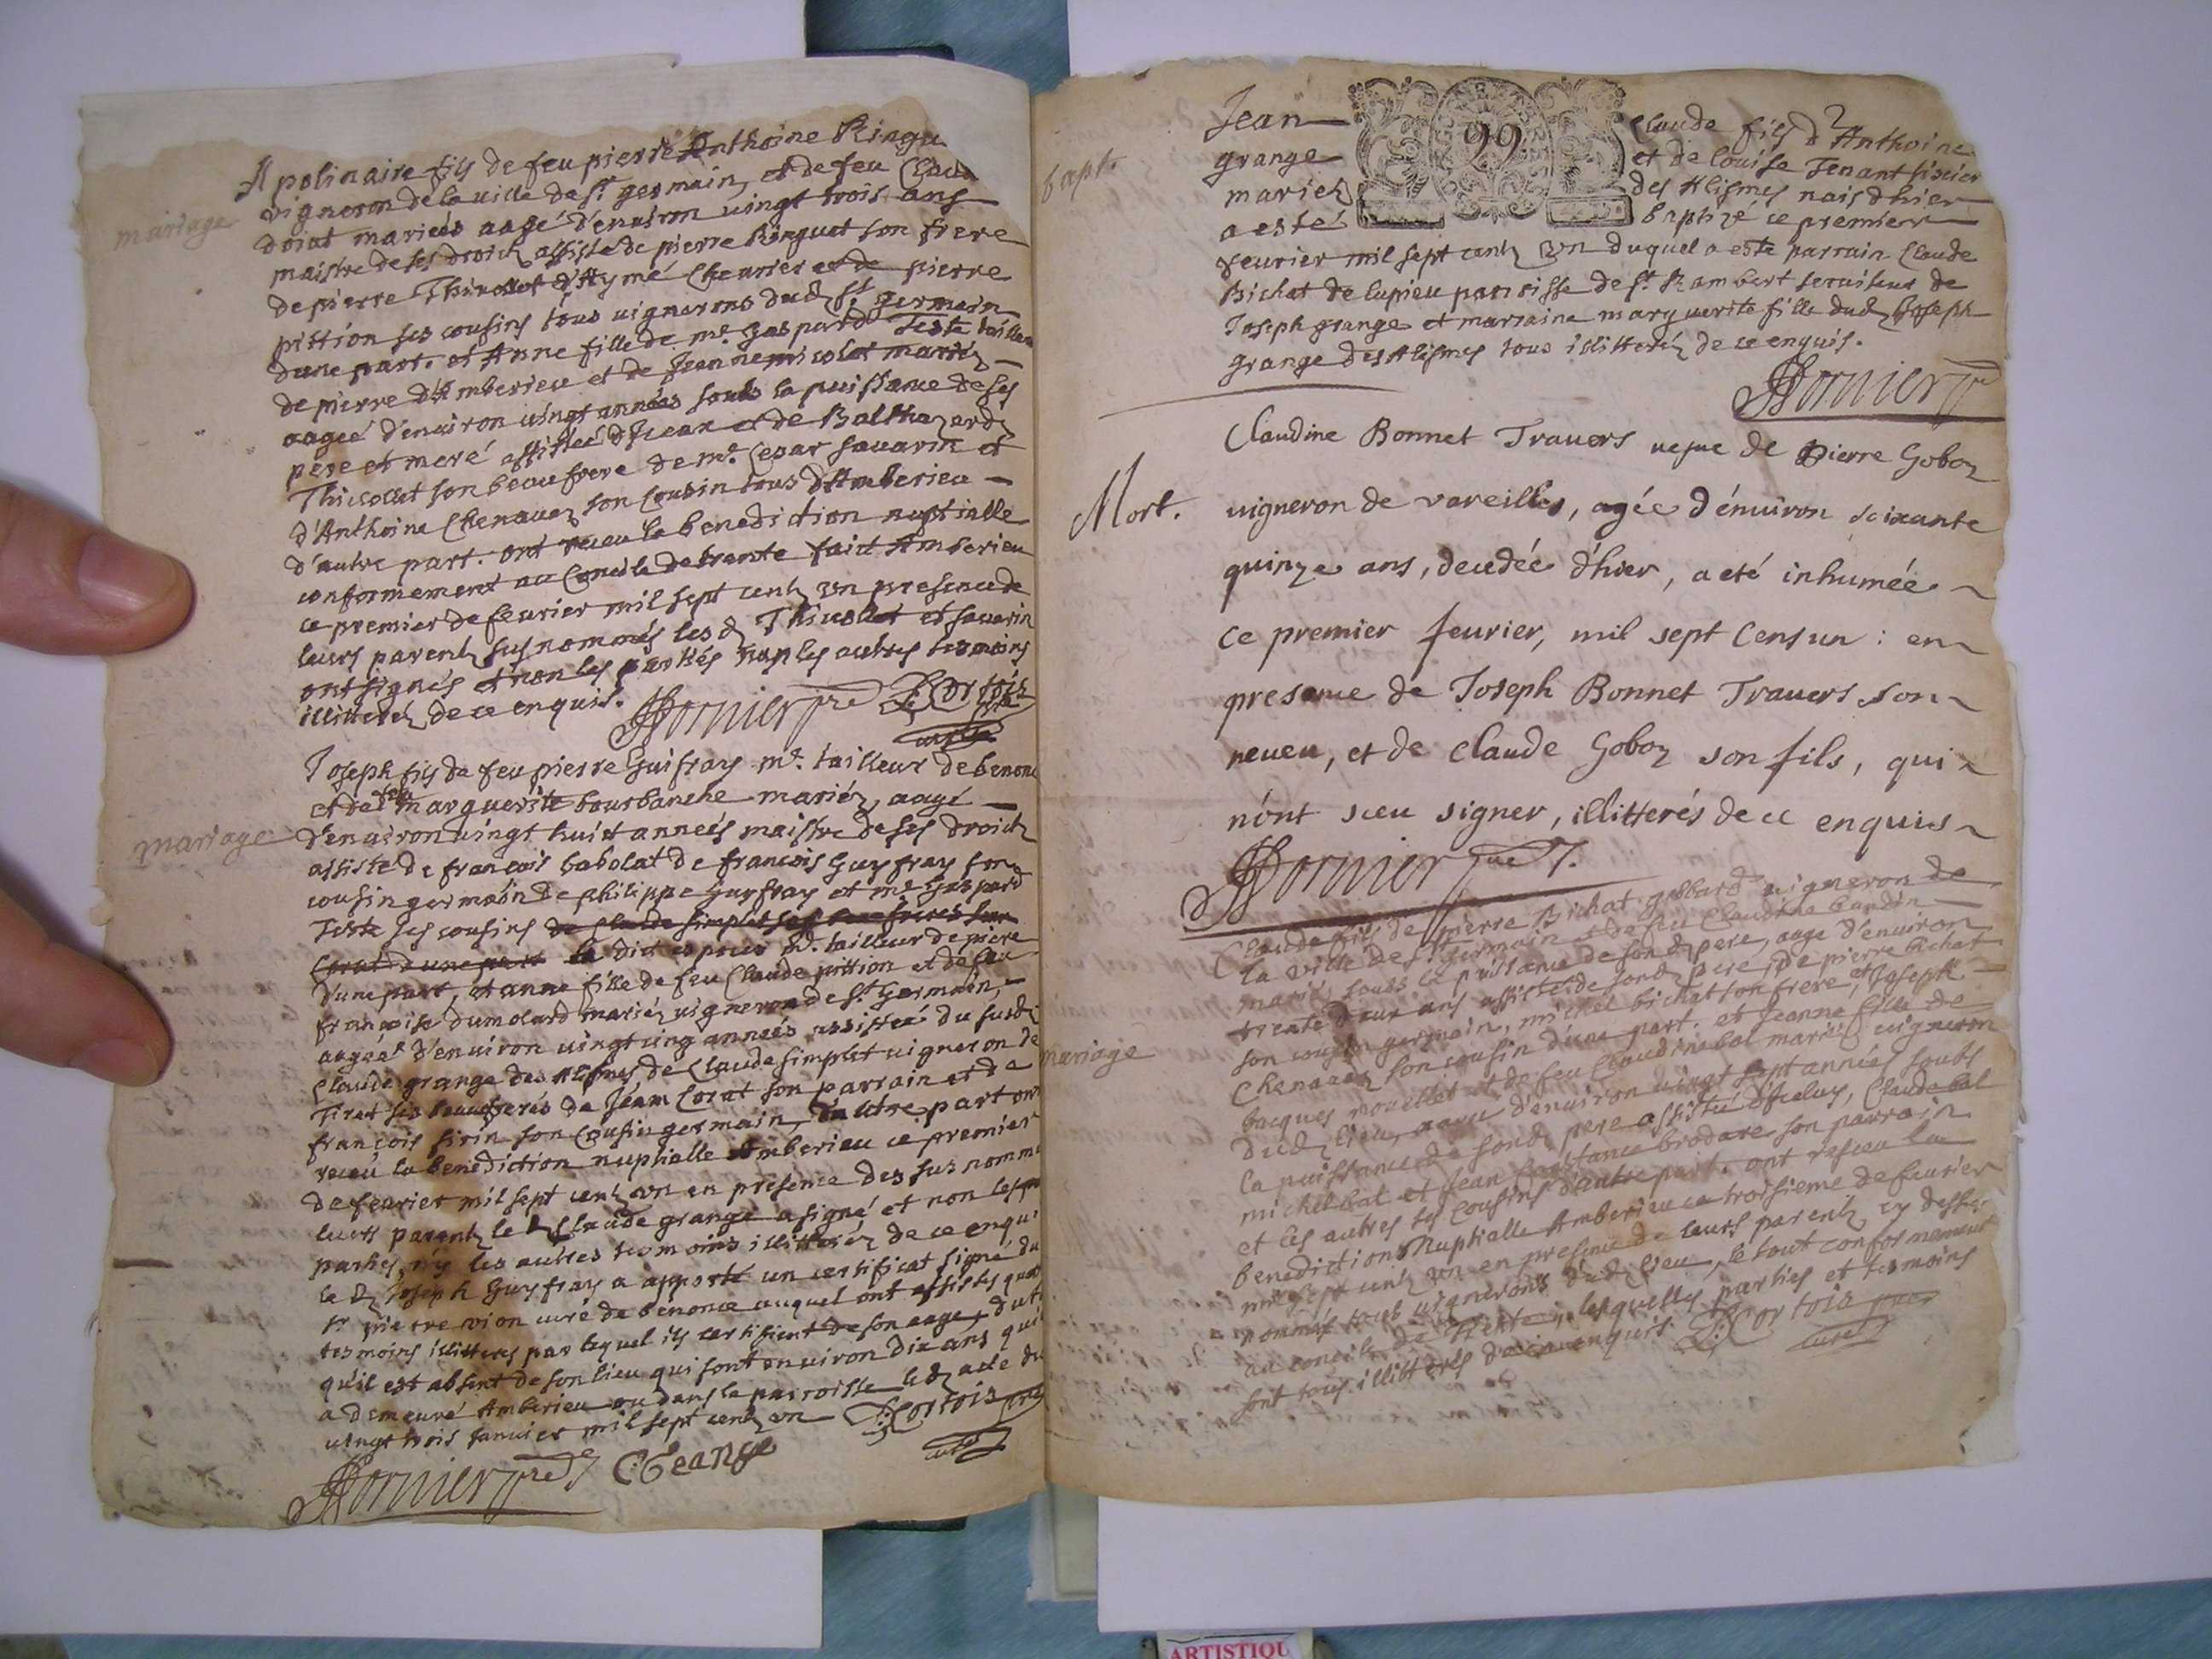 mariage
Apolinaire fils de feu pierre Anthoine Ringu
vigneron de la ville de st germain, et de feu Clau
dorat mariés aagé d'environ vingt trois ans
maistre de ses droich assisté de pierre Ringuet son frere
de pierre Thivollet d'Aymé Chevrier et de pierre
pittion ses cousins tous vignerons dud st germain
dune part. et Anne fille de mr. Gaspard Teste tailleur
de pierre d'Amberieu et de Jeanne nicolet mariéz
aagée d'environ vingt années soubs la puissance de ses
pere et mere assistée de Jean et de Balthazard
Thivollet son beaufrere de mr. Cesar savarin et
d'Anthoine Chenavez son Cousin tous d'Amberieu
d'autre part. ont receu la benediction nuptialle
conformement au Concile de trente faict Amberieu
ce premier de feurier mil sept centz un presence de
leurs parentz susnommés lesd Thivollet et savarin
ont signés et non les parties n'y les autres tesmoins
illitteréz de ce enquis. Dornier pre Cortois
curé
mariage
Joseph fils de feu pierre Guifray mr. tailleur de benonc
et de feu marguerite bourbanche mariéz, aagé
d'environ vingt huict années maistre de ses droictz
assisté de francois babolat de francois Guyfray son
cousin germain de philippe Guyfray et mr Gaspard
Teste ses cousins de Claude simplet ses beaufreres Jean
Corat d'une part le dict espoux mr. tailleur de piere
d'une part, et anne fille de feu Claude pittion et de feu
françoise dumolard mariéz vigneron de st Germain,
aagée d'environ vingt cinq années assistée du susd
Claude grange des Alismes de Claude simplet vigneron de
Tiret ses beaufreres de Jean Corat son parrain et de
françois sirin son Cousin germain, d'autre part ont
receu la benediction nuptialle Amberieu ce premier
de feurier mil sept centz un en presence des sus nommé
leurs parentz led Claude grange a signé et non les
parties n'y les autres tesmoins illitteréz de ce enqui
led Joseph Guyfray a apporté un certificat signé du
sr pierre vion curé de benonce auquel ont assistés quat
tesmoins illitteres par lequel ils certifient de son aage, dut
qu'il est absent de son lieu qui sont environ dix ans qui
a demeuré Amberieu ou dans la parroisse led acte du
vingt trois Janvier mil sept centz un Cortois pre
curé
Dornier pre C Grange
bapt.
Jean Claude fils d'Anthoine
99
grange et de Louise Tenant sixier
mariéz des Alismes nais d'hier
a esté baptizé ce premier
feurier mil sept centz Un duquel a esté parrain Claude
Bichat de lupieu parroisse de st. Rambert serviteur de
Joseph grange et marraine marguerite fille dud Joseph
grange des Alismes tous illitteréz de ce enquis.
Dornier pre
Mort.
Claudine Bonnet Travers vefve de Pierre Goboz
vigneron de vareilles, agée d'énviron soixante
quinze ans, decedée d'hier, a eté inhumée
ce premier feurier, mil sept Cens un : en
presence de Joseph Bonnet Travers son
neveu, et de Claude Goboz son fils, qui
n'ont sceu signer, illitterés de ce enquis
Dornier pre
mariage
Claude fils de pierre Bichat gobbard vigneron de
la ville de st. germain et de feu Claudine Caudin
mariéz soubs la puissance de sond pere, aage d'environ
trente deux ans assisté de sond pere, de pierre bichat
son cousin germain, michel bichat son frere, et Joseph
Chenavez son cousin d'une part. et Jeanne fille de
Jacques novellet et de feu Claudine bal mariéz vigneron
dud lieu, aagée d'environ vingt sept années soubs
la puissance de sond pere assistée d'iceluy, Claude bal
michel bal et Jean Constance brodare son parrain
et les autres ses Cousins d'autre part. ont receu la
benediction Nuptialle Amberieu ce troisieme de feurier
mil sept centz un en presence de leurs parentz cy dessus
nommés tous vignerons dud lieu, le tout conformement
au concile de Trente, lesquelles parties et tesmoins
sont tous illitterés de ce enquis Cortois pre
curé
ARTISTIQU